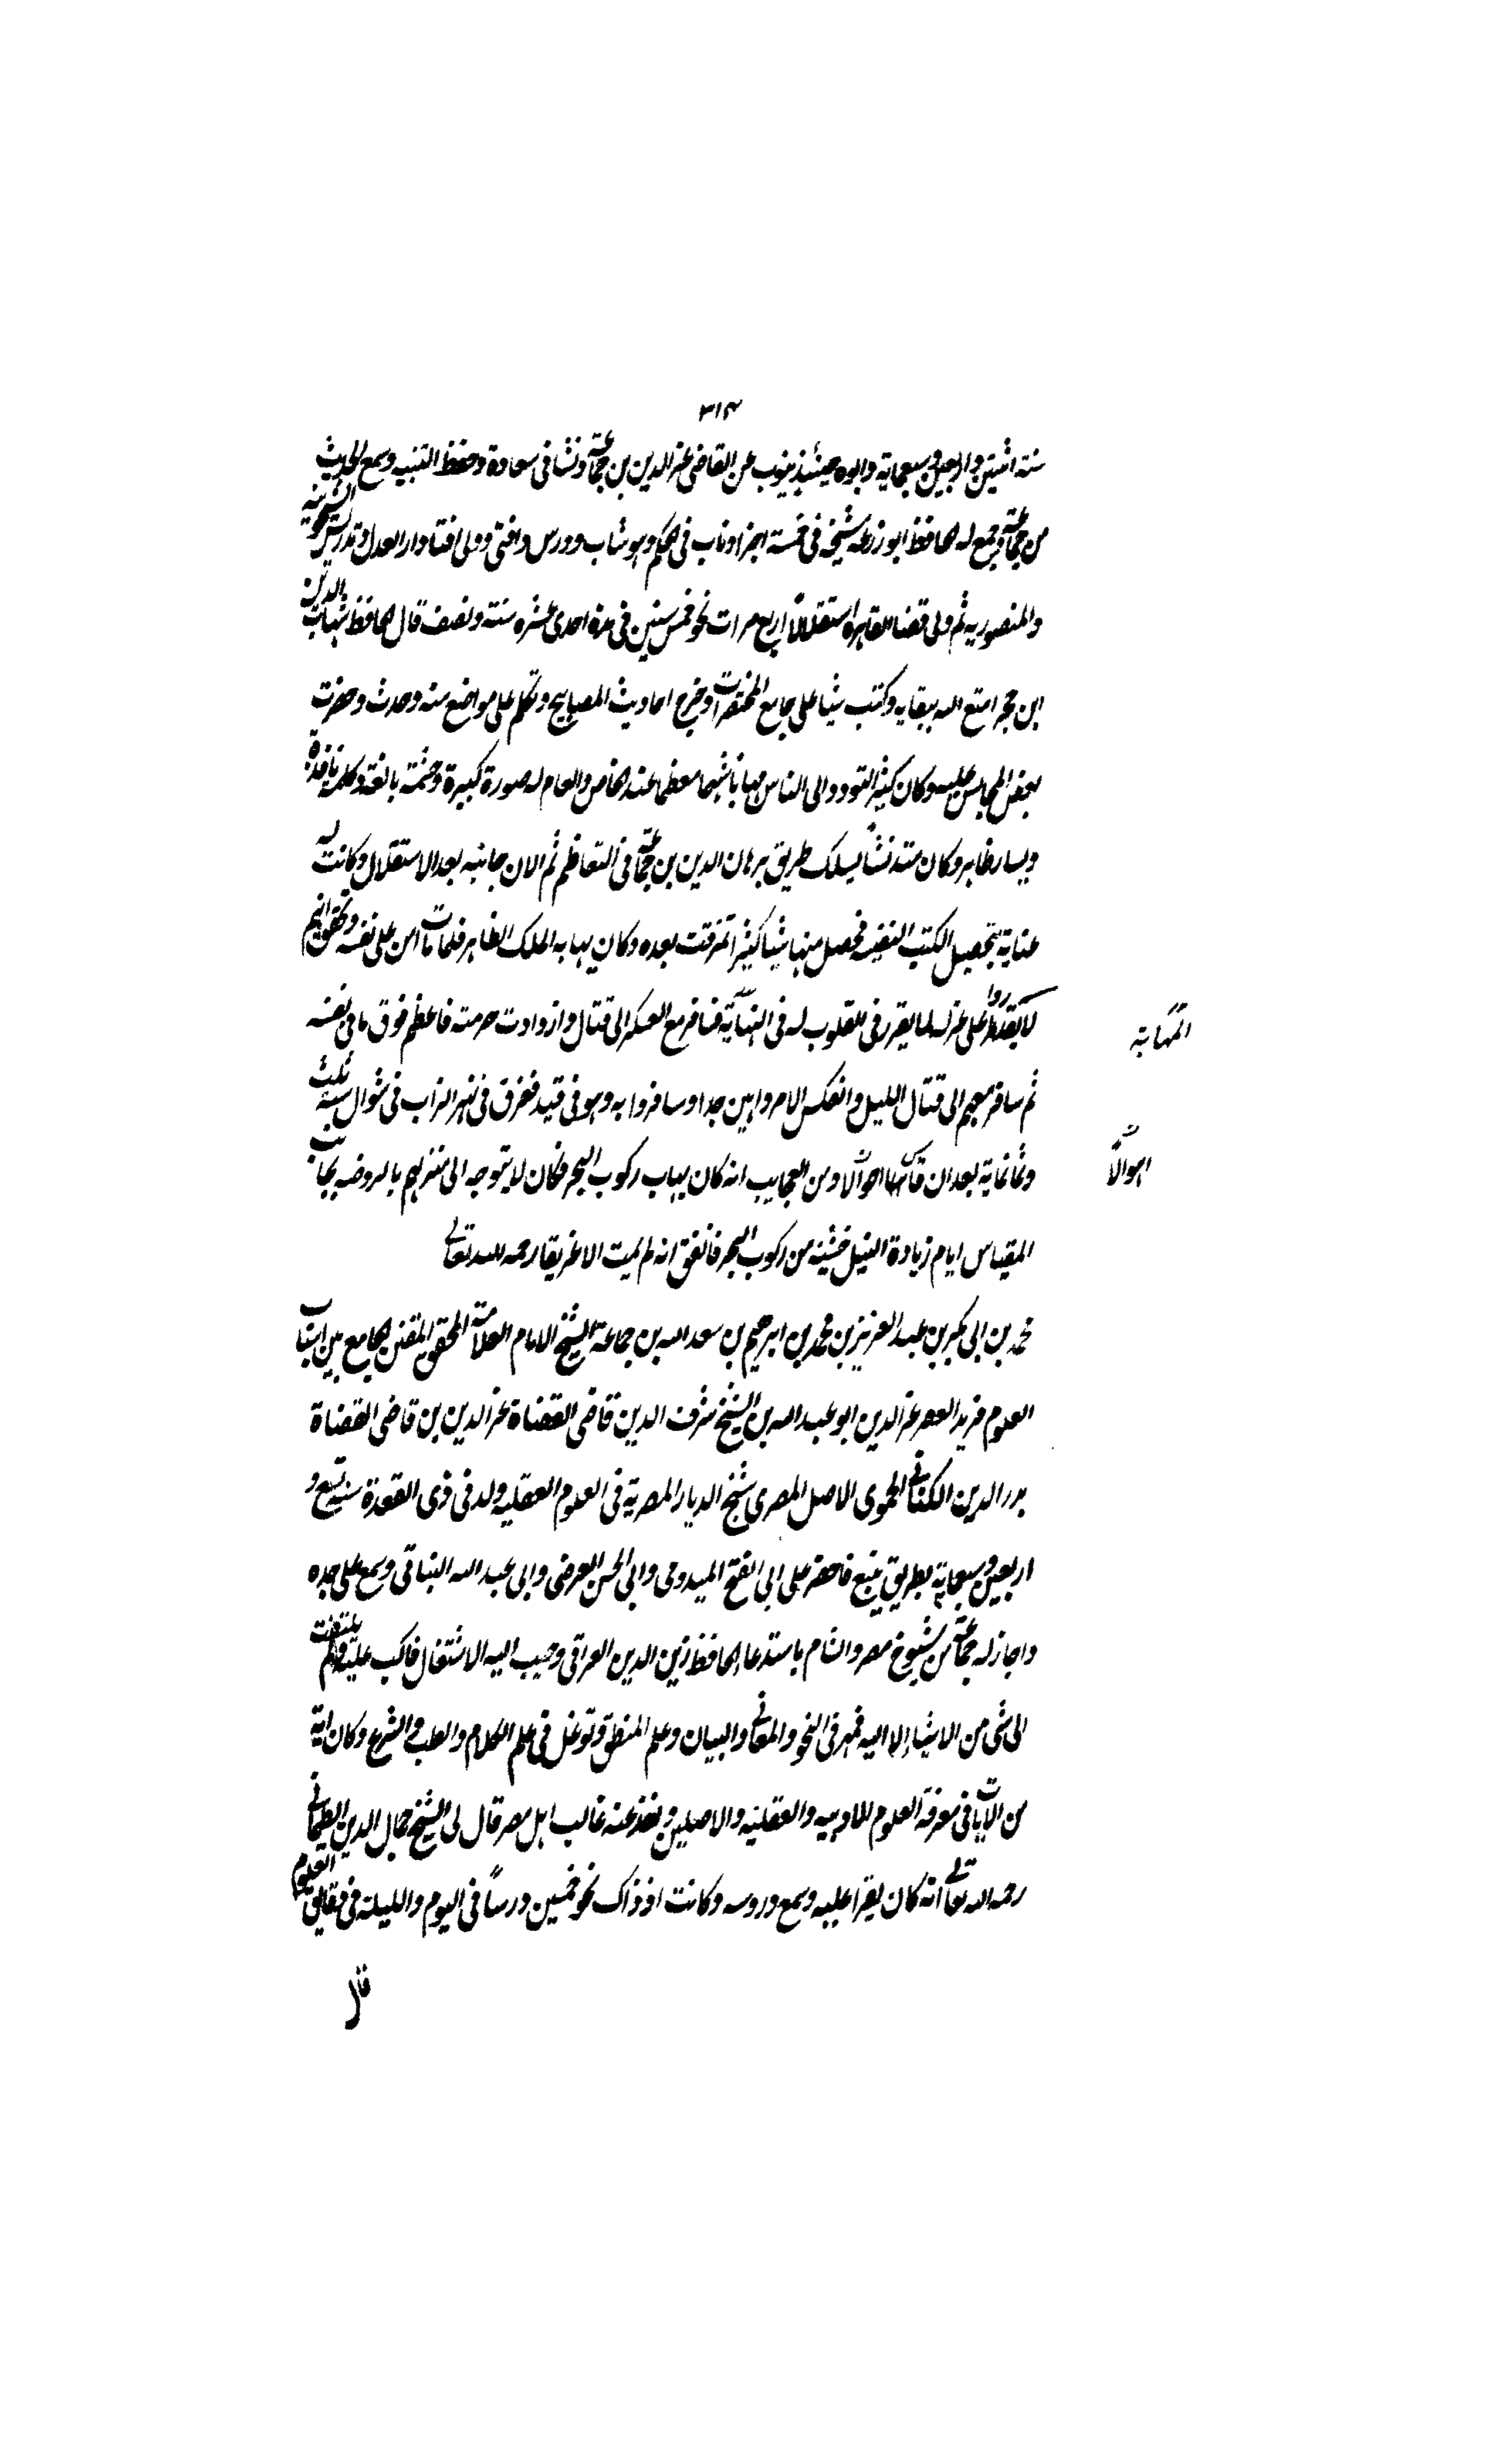 ٣١٤
سنة اثنتين واربعين وسبعماية وابوه حينئذ ينوب عن القاضى عز الدين بن جماعة ونشأ فى سعادة وحفظ التنبيه وسمع الحديث
من جماعة وجمع له الحافظ ابو زرعة مشيخة فى خمسة اجزاء وناب فى الحكم وهو شاب ودرس وافتى وولى افتا دار العدل وتدريس الشيخونية
والمنصورية ثم ولى قضا القاهرة استقلالاً اربع مرات نحو خمس سنين فى مدة احدى عشره سنة ونصف قال الحافظ شهاب الدين
ابن حجر امتع الله ببقايه وكتب شيئا على جامع المختصرات وخرج احاديث المصابيح وتكلم على مواضع منه وحدث وحضرت
بعض المجالس عليه وكان كثير التودد الى الناس مهابا شهما معظما عند الخاص والعام له صورة كبيرة وحشمة بالغة وكلمة نافذة
ويسار ظاهر وكان منذ نشأ يسلك طريق برهان الدين بن جماعة فى التعاظم ثم الان جانبه بعد الاستقلال وكانت له
عناية بتحصيل الكتب النفيسه فحصل منها شيئا كثيرا تمزقت بعده وكان يهابه الملك الظاهر فلما مات امن على نفسه وتحقق انهم
لا يقدروا على عزله لما يقرر فى القلوب له فى النهاية فسافر مع العسكر الى قتال وازدادت حرمته فاعظم فوق ما فى نفسه
المهابة
ثم سافر معهم الى قتال الليل وانعكس الامر واهين جدا وسافروا به وهو فى قيد فغرق فى نهر الزاب فى شوال سنة ثلث
وثمانماية بعد ان قاسى اهوالا ومن العجايب انه كان يهاب ركوب البحر فكان لا يتوجه الى منتزهم بالروضه بجانب
اهوالاً
المقياس ايام زيادة النيل خشية من ركوب البحر فاتفق انه لم يمت الا غريقا رحمه الله تعالى
محمد بن ابى بكر بن عبد العزيز بن محمد بن ابرهيم بن سعد الله بن جماعة الشيخ الامام العلامة المحقق المتقن الجامع بين اشتات
العلوم فريد العصر عز الدين ابو عبد الله بن الشيخ شرف الدين قاضى القضاة عز الدين بن قاضى القضاة
بدر الدين الكنانى الحموى الاصل المصرى شيخ الديار المصرية فى العلوم العقليه ولد فى ذى القعدة سنة تسع و
اربعين وسبعماية بطريق ينبع فاحضر على ابى الفتح الميدومى وابى الحسن العرضى وابى عبد الله البياتى وسمع على جده
واجاز له جماعة من شيوخ مصر والشام باستدعا الحافظ زين الدين العراقى وحبب اليه الاشتغال فاكب عليه ولم يلتفت
الى شى من الاشيا إلا اليه فمهر فى النحو والمعانى والبيان وعلم المنطق وتوغل فى علم الكلام والطب والتشريح وكان اية
من الايات فى معرفة العلوم الادبيه والعقلية والاصلين وبعد عنه غالب اهل مصر قال لى الشيخ جمال الدين الطيمانى
رحمه الله تعالى انه كان يقرا عليه وسمع دروسه وكانت اذ ذاك نحو خمسين درساً فى اليوم والليلة فى دقايق العلوم